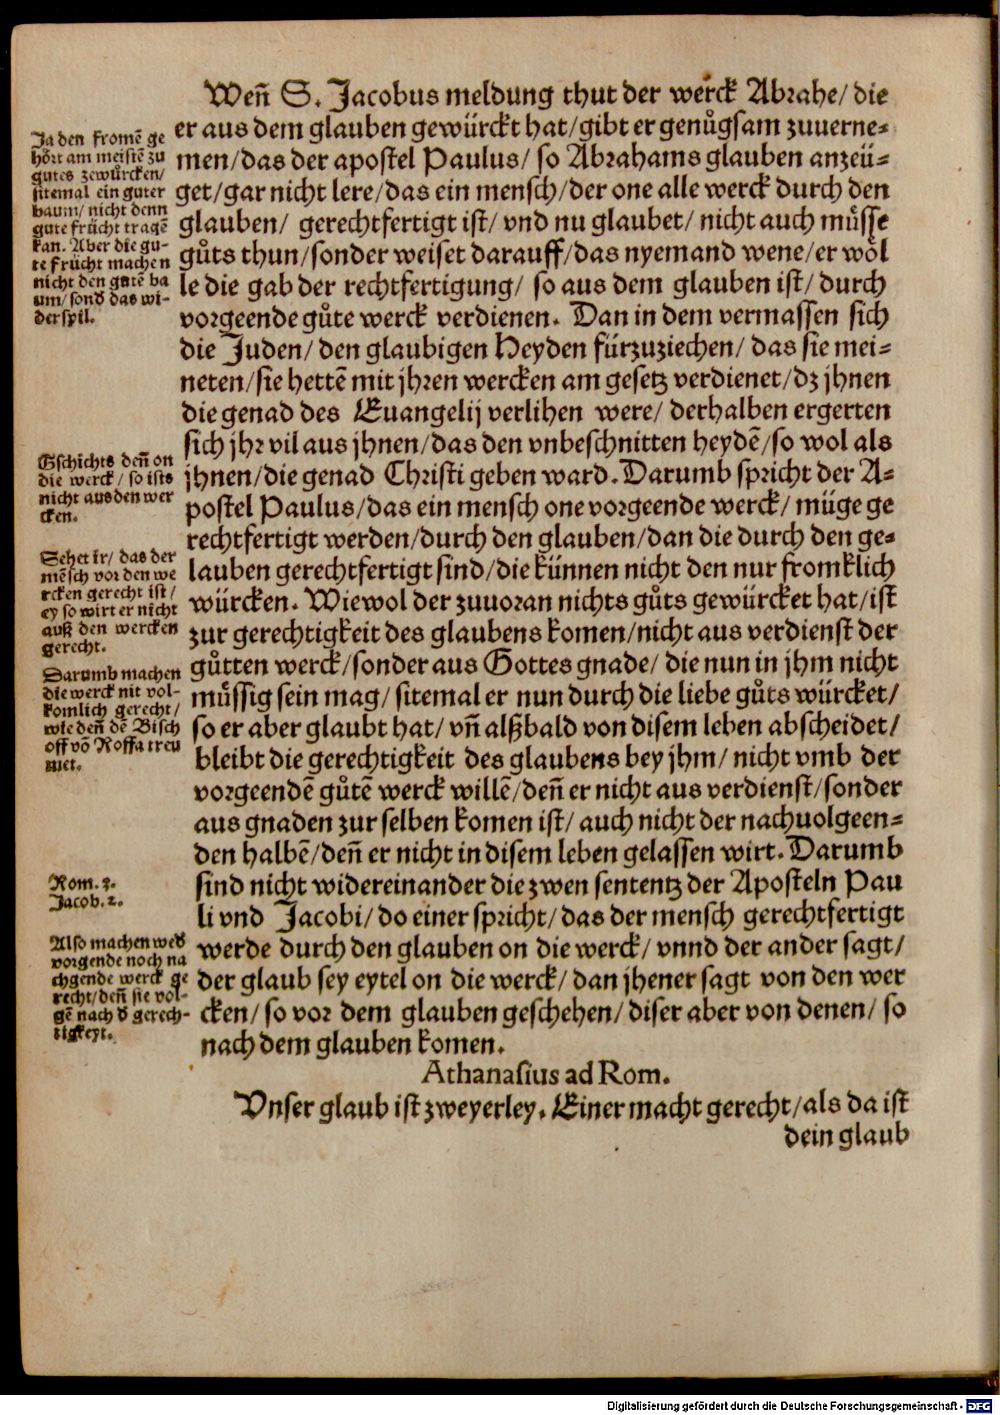 Weñ S. Jacobus meldung thut der werck Abrahe/ die
er aus dem glauben gewürckt hat/gibt er genůgsam zuuerne-
men/das der apostel Paulus/ so Abrahams glauben anzeü-
get/gar nicht lere/das ein mensch/der one alle werck durch den
glauben/ gerechtfertigt ist/ vnd nu glaubet/ nicht auch můsse
gůts thun/sonder weiset darauff/das nyemand wene/er wöl
le die gab der rechtfertigung/ so aus dem glauben ist/ durch
vorgeende gůte werck verdienen. Dan in dem vermassen sich
die Juden/ den glaubigen Heyden fürzuziechen/ das sie mei-
neten/sie hettē mit jhren wercken am gesetz verdienet/dz jhnen
die genad des Euangelij verlihen were/ derhalben ergerten
sich jhr vil aus jhnen/das den vnbeschnitten heydē/so wol als
jhnen/die genad Christi geben ward. Darumb spricht der A-
postel Paulus/das ein mensch one vorgeende werck/ müge ge
rechtfertigt werden/durch den glauben/dan die durch den ge-
lauben gerechtfertigt sind/die künnen nicht den nur fromklich
würcken. Wiewol der zuuoran nichts gůts gewürcket hat/ist
zur gerechtigkeit des glaubens komen/nicht aus verdienst der
gůtten werck/sonder aus Gottes gnade/ die nun in jhm nicht
můssig sein mag/ sitemal er nun durch die liebe gůts würcket/
so er aber glaubt hat/ vñ alßbald von disem leben abscheidet/
bleibt die gerechtigkeit des glaubens bey jhm/ nicht vmb der
vorgeendē gůtē werck willē/deñ er nicht aus verdienst/sonder
aus gnaden zur selben komen ist/ auch nicht der nachuolgeen-
den halbē/deñ er nicht in disem leben gelassen wirt. Darumb
sind nicht widereinander die zwen sententz der Aposteln Pau
li vnd Jacobi/ do einer spricht/das der mensch gerechtfertigt
werde durch den glauben on die werck/ vnnd der ander sagt/
der glaub sey eytel on die werck/ dan jhener sagt von den wer
cken/ so vor dem glauben geschehen/ diser aber von denen/ so
nach dem glauben komen.
Athanasius ad Rom.
Vnser glaub ist zweyerley. Einer macht gerecht/als da ist
dein glaub
Ja den fromē ge
hört am meistē zu
gutes zewürcken/
sitemal ein guter
baum/ nicht denn
gute frücht tragē
kan. Aber die gu-
te frücht machen
nicht den gutē ba
um/ sond das wi-
derspil.
Gschichts deñ on
die werck/ so ists
nicht aus den wer
cken.
Sehet ir/ das der
mēsch vor den we
rcken gerecht ist/
ey so wirt er nicht
auß den wercken
gerecht.
Darumb machen
die werck nit vol-
komlich gerecht/
wie deñ dē Bisch
off võ Roffa treu
met.
Rom. 3.
Jacob. 2.
Also machen wed
vorgende noch na
chgende werck ge
recht/deñ sie vol-
gē nach d gerech-
tigkeyt.
Digitalisierung gefördert durch die Deutsche Forschungsgemeinschaft - DFG